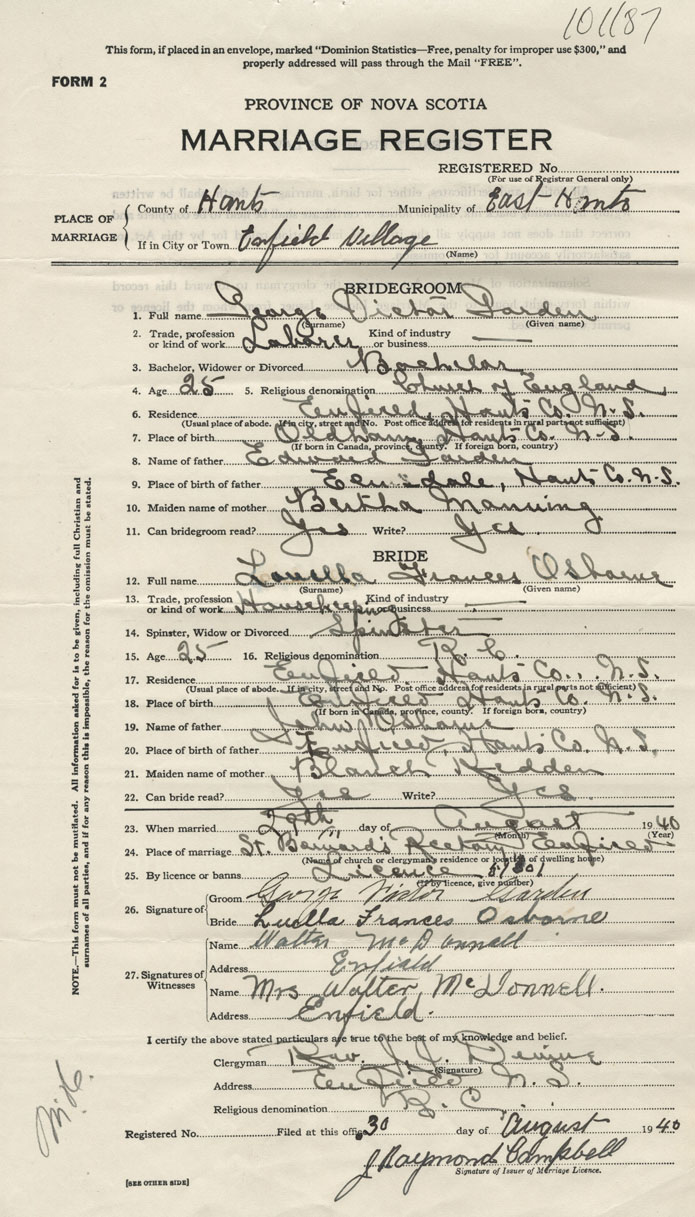 101187
This form, if placed in an envelope, marked "Dominion Statistics—Free, penalty for improper use $300," and
properly addressed will pass through the Mail "FREE".
FORM 2
PROVINCE OF NOVA SCOTIA
MARRIAGE REGISTER
REGISTERED No.
(For use of Registrar General only)
PLACE OF MARRIAGE
County of Hants Municipality of East Hants
If in City or Town Enfield Village
(Name)
BRIDEGROOM
1. Full name George Victor Garden
(Surname) (Given name)
2. Trade, profession or kind of work Laborer Kind of industry or business —
3. Bachelor, Widower or Divorced Bachelor
4. Age 25 5. Religious denomination Church of England
6. Residence Enfield, Hants Co. N.S.
(Usual place of abode. If in city, street and No. Post office address for residents in rural parts not sufficient)
7. Place of birth Oldham, Hants Co. N.S.
(If born in Canada, province, county. If foreign born, country)
8. Name of father Edward Garden
9. Place of birth of father Elmsdale, Hants Co. N.S.
10. Maiden name of mother Bertha Manning
11. Can bridegroom read? Yes Write? Yes
BRIDE
12. Full name Louella Frances Osborne
(Surname) (Given name)
13. Trade, profession or kind of work Housekeeping Kind of industry or business —
14. Spinster, Widow or Divorced Spinster
15. Age 25 16. Religious denomination R. C.
17. Residence Enfield Hants Co., N.S.
(Usual place of abode. If in city, street and No. Post office address for residents in rural parts not sufficient)
18. Place of birth Enfield Hants Co. N.S.
(If born in Canada, province, county. If foreign born, country)
19. Name of father Osborne
20. Place of birth of father Enfield, Hants Co. N.S.
21. Maiden name of mother Blanch Hedden
22. Can bride read? Yes Write? Yes
23. When married 29th day of August 1940
(Month) (Year)
24. Place of marriage St. Bernard's Rectory Enfield
(Name of church or clergyman's residence or location of dwelling house)
25. By licence or banns Licence
(If by licence, give number)
26. Signature of
Groom George Victor Garden
Bride Luella Frances Osborne
27. Signatures of Witnesses
Name Walter McDonnall
Address Enfield
Name Mrs Walter McDonnell.
Address Enfield.
I certify the above stated particulars are true to the best of my knowledge and belief.
Clergyman Rev. J. J. Devine
(Signature)
Address Enfield N.S.
Religious denomination R. C.
Registered No. Filed at this office 30 day of August 1940
J Raymond Campbell
Signature of Issuer of Marriage Licence.
[SEE OTHER SIDE]
NOTE.—This form must not be mutilated. All information asked for is to be given, including full Christian and
surnames of all parties, and if for any reason this is impossible, the reason for the omission must be stated.